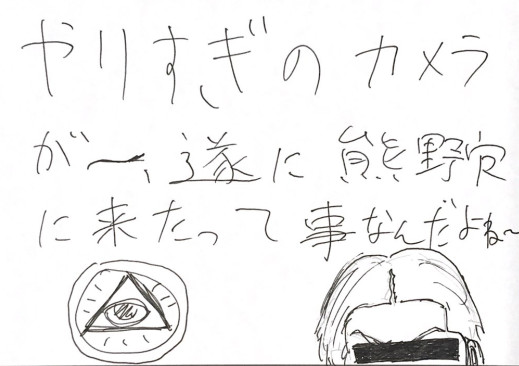 やりすぎのカメラ
が〜、遂に熊野穴
に来たって事なんだよね〜